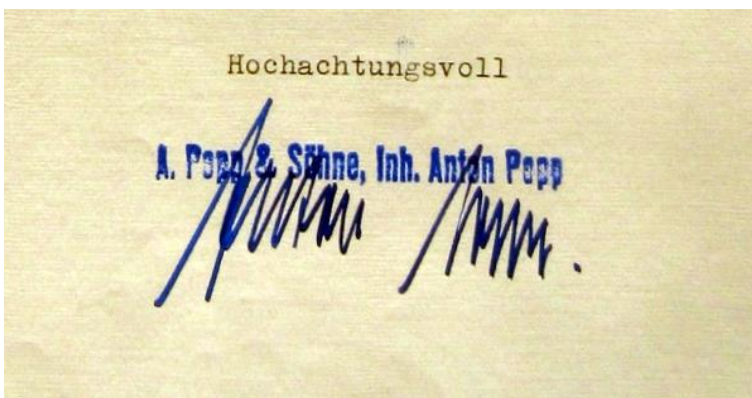 Hochachtungsvoll
A. Popp & Söhne, Inh. Anton Popp
Anton Popp.